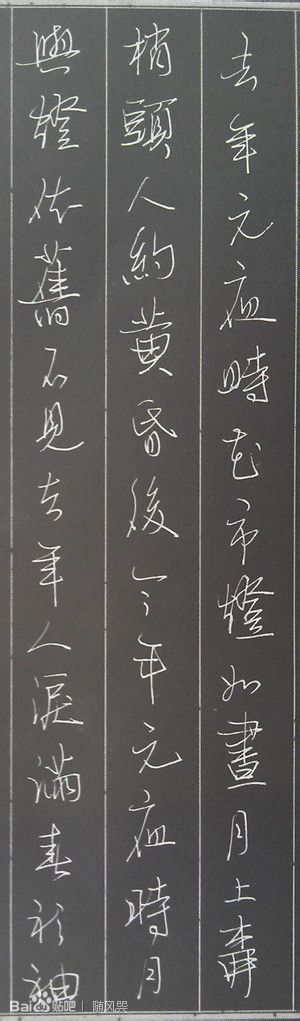 去年元夜時花市燈如晝月上柳
梢頭人約黃昏後今年元夜時月
與燈依舊不見去年人淚滿春衫袖
Bai 贴吧 | 随风